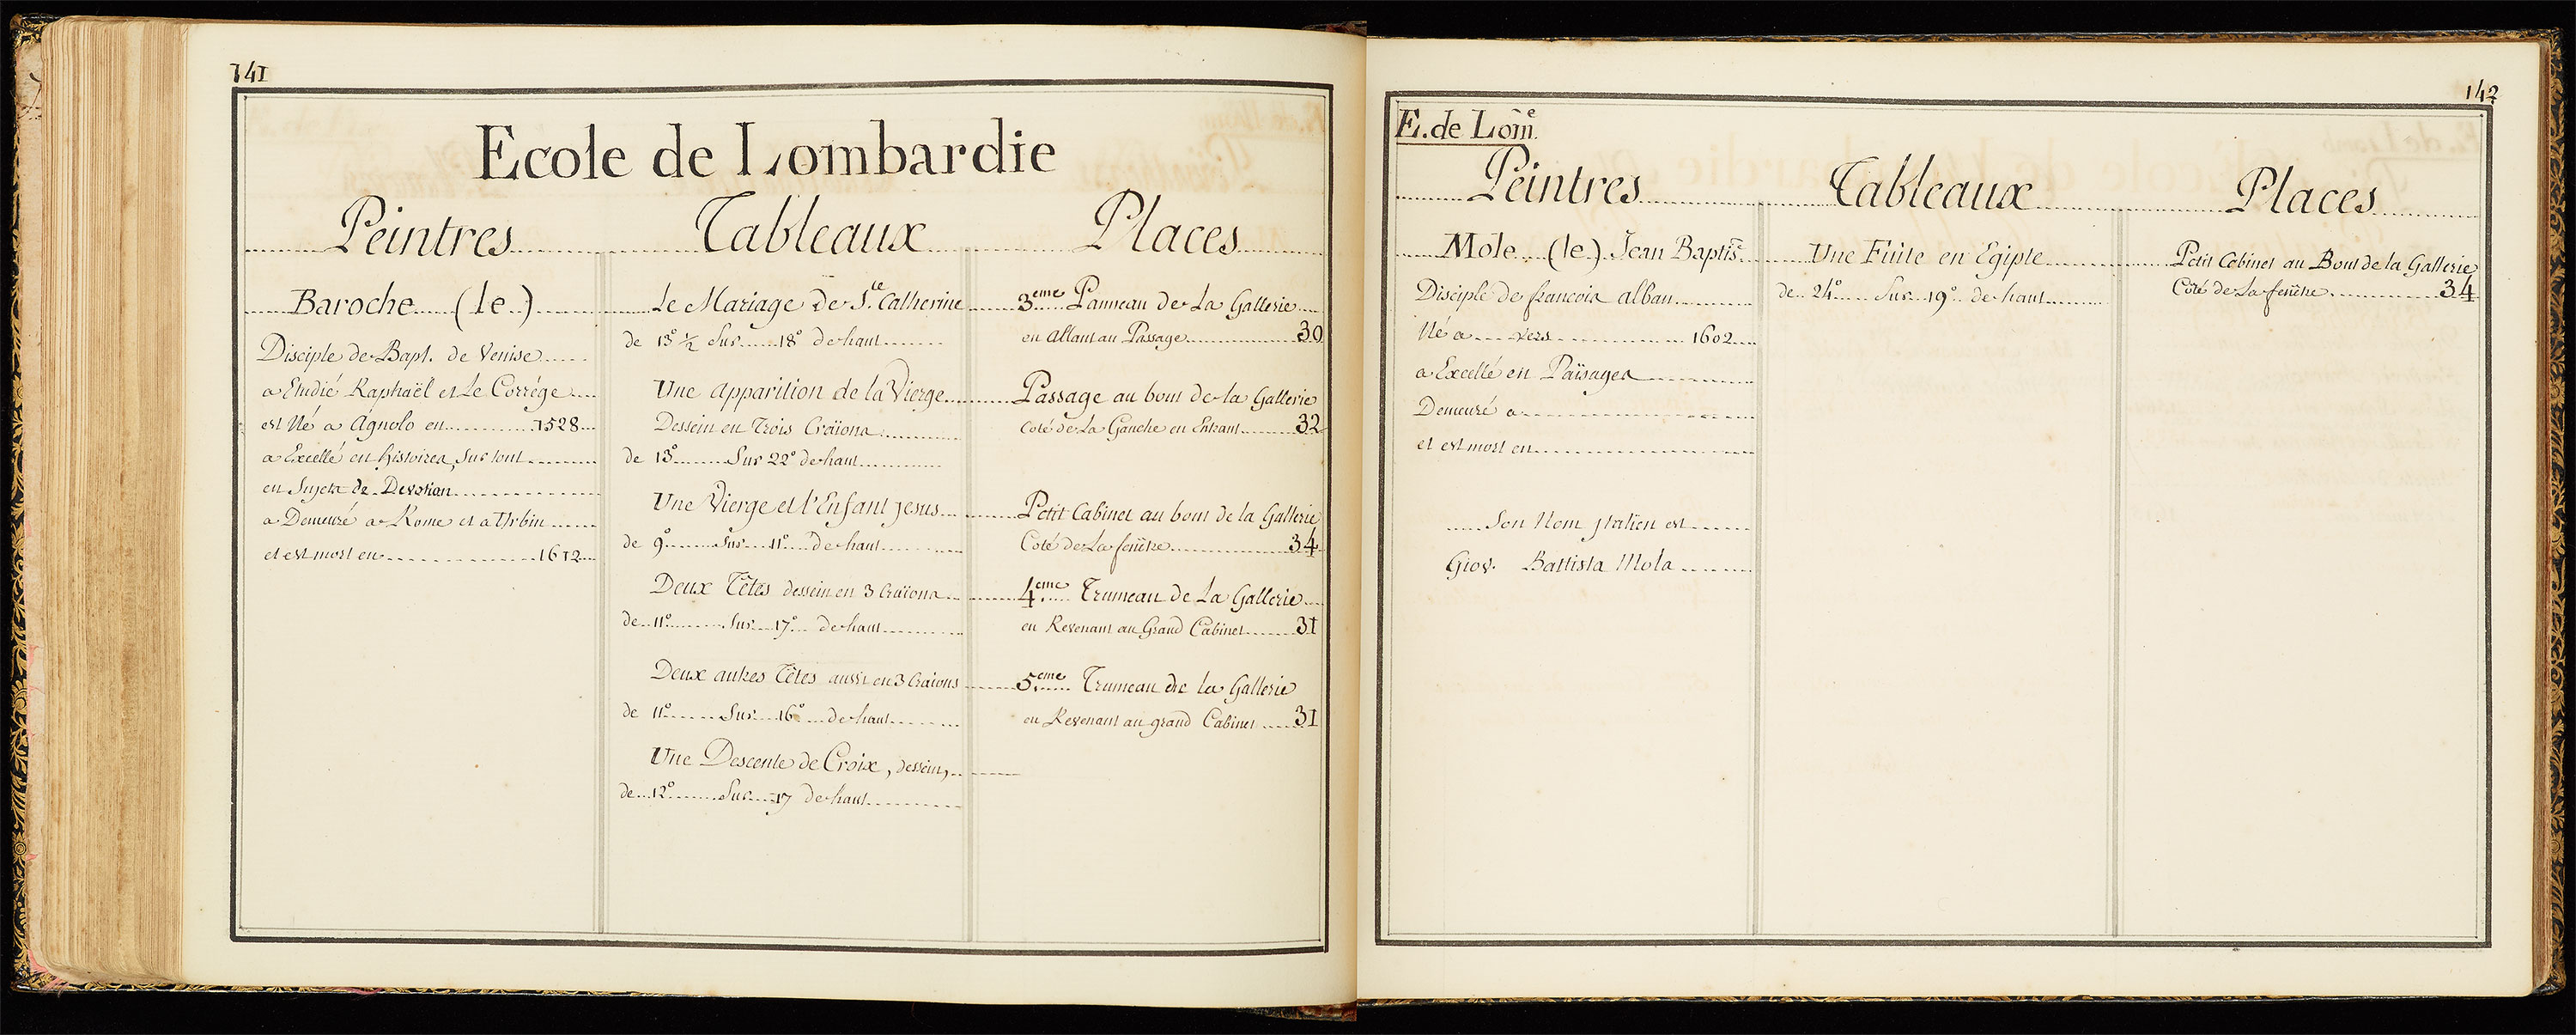 141
Ecole de Lombardie
Peintres Tableaux Places
Baroche (le)
Disciple de Bapt. de Venise
a Etudié Raphaël et Le Corrége
est Né a Agnolo en 1528
a Excellé en histoires, Sur tout
en Sujets de Devotion
a Demeuré a Rome et a Urbin
et est mort en 1612
Le Mariage de Ste Catherine
de 13° ½ Sur 18° de haut
Une apparition de la Vierge
Dessein en Trois Craïons
de 13° Sur 22° de haut
Une Vierge et l'Enfant Jesus
de 9° Sur 11° de haut
Deux Têtes dessein en 3 Craïons
de 11° Sur 17° de haut
Deux autres Têtes aussi en 3 Craïons
de 11° Sur 16° de haut
Une Descente de Croix, dessein,
de 12° Sur 17 de haut
3eme Panneau de La Gallerie
en allant au Passage 30
Passage au bout de la Gallerie
Coté de La Gauche en Entrant 32
Petit Cabinet au bout de la Gallerie
Coté de La fenêtre 34
4eme Trumeau de La Gallerie
en Revenant au Grand Cabinet 31
5eme Trumeau de la Gallerie
en Revenant au grand Cabinet 31
142
E. de Lom̃e
Peintres Tableaux Places
Mole (le) Jean Baptis̃e
Disciple de francois alban
Né a vers 1602
a Excellé en Païsages
Demeuré a
et est mort en
Son Nom Italien est
Giov. Battista Mola
Une Fuite en Egipte
de 24° Sur 19° de haut
Petit Cabinet au Bout de la Gallerie
Coté de La fenêtre 34